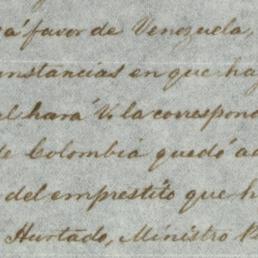 á favor de Venezuela,
unstancias en que ha
el hará V. la correspond
de Colombia quedó a
del emprestito que h
Hurtado, Ministro P